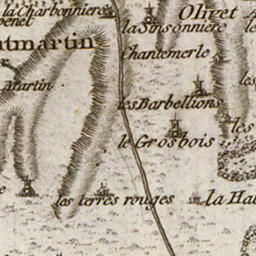 la Charbonniere
Olivet
penet
la Sinsonniere
ntmartin
Chantemerle
Martin
les Barbellions
les
le Grosbois
les terres rouges
la Hal